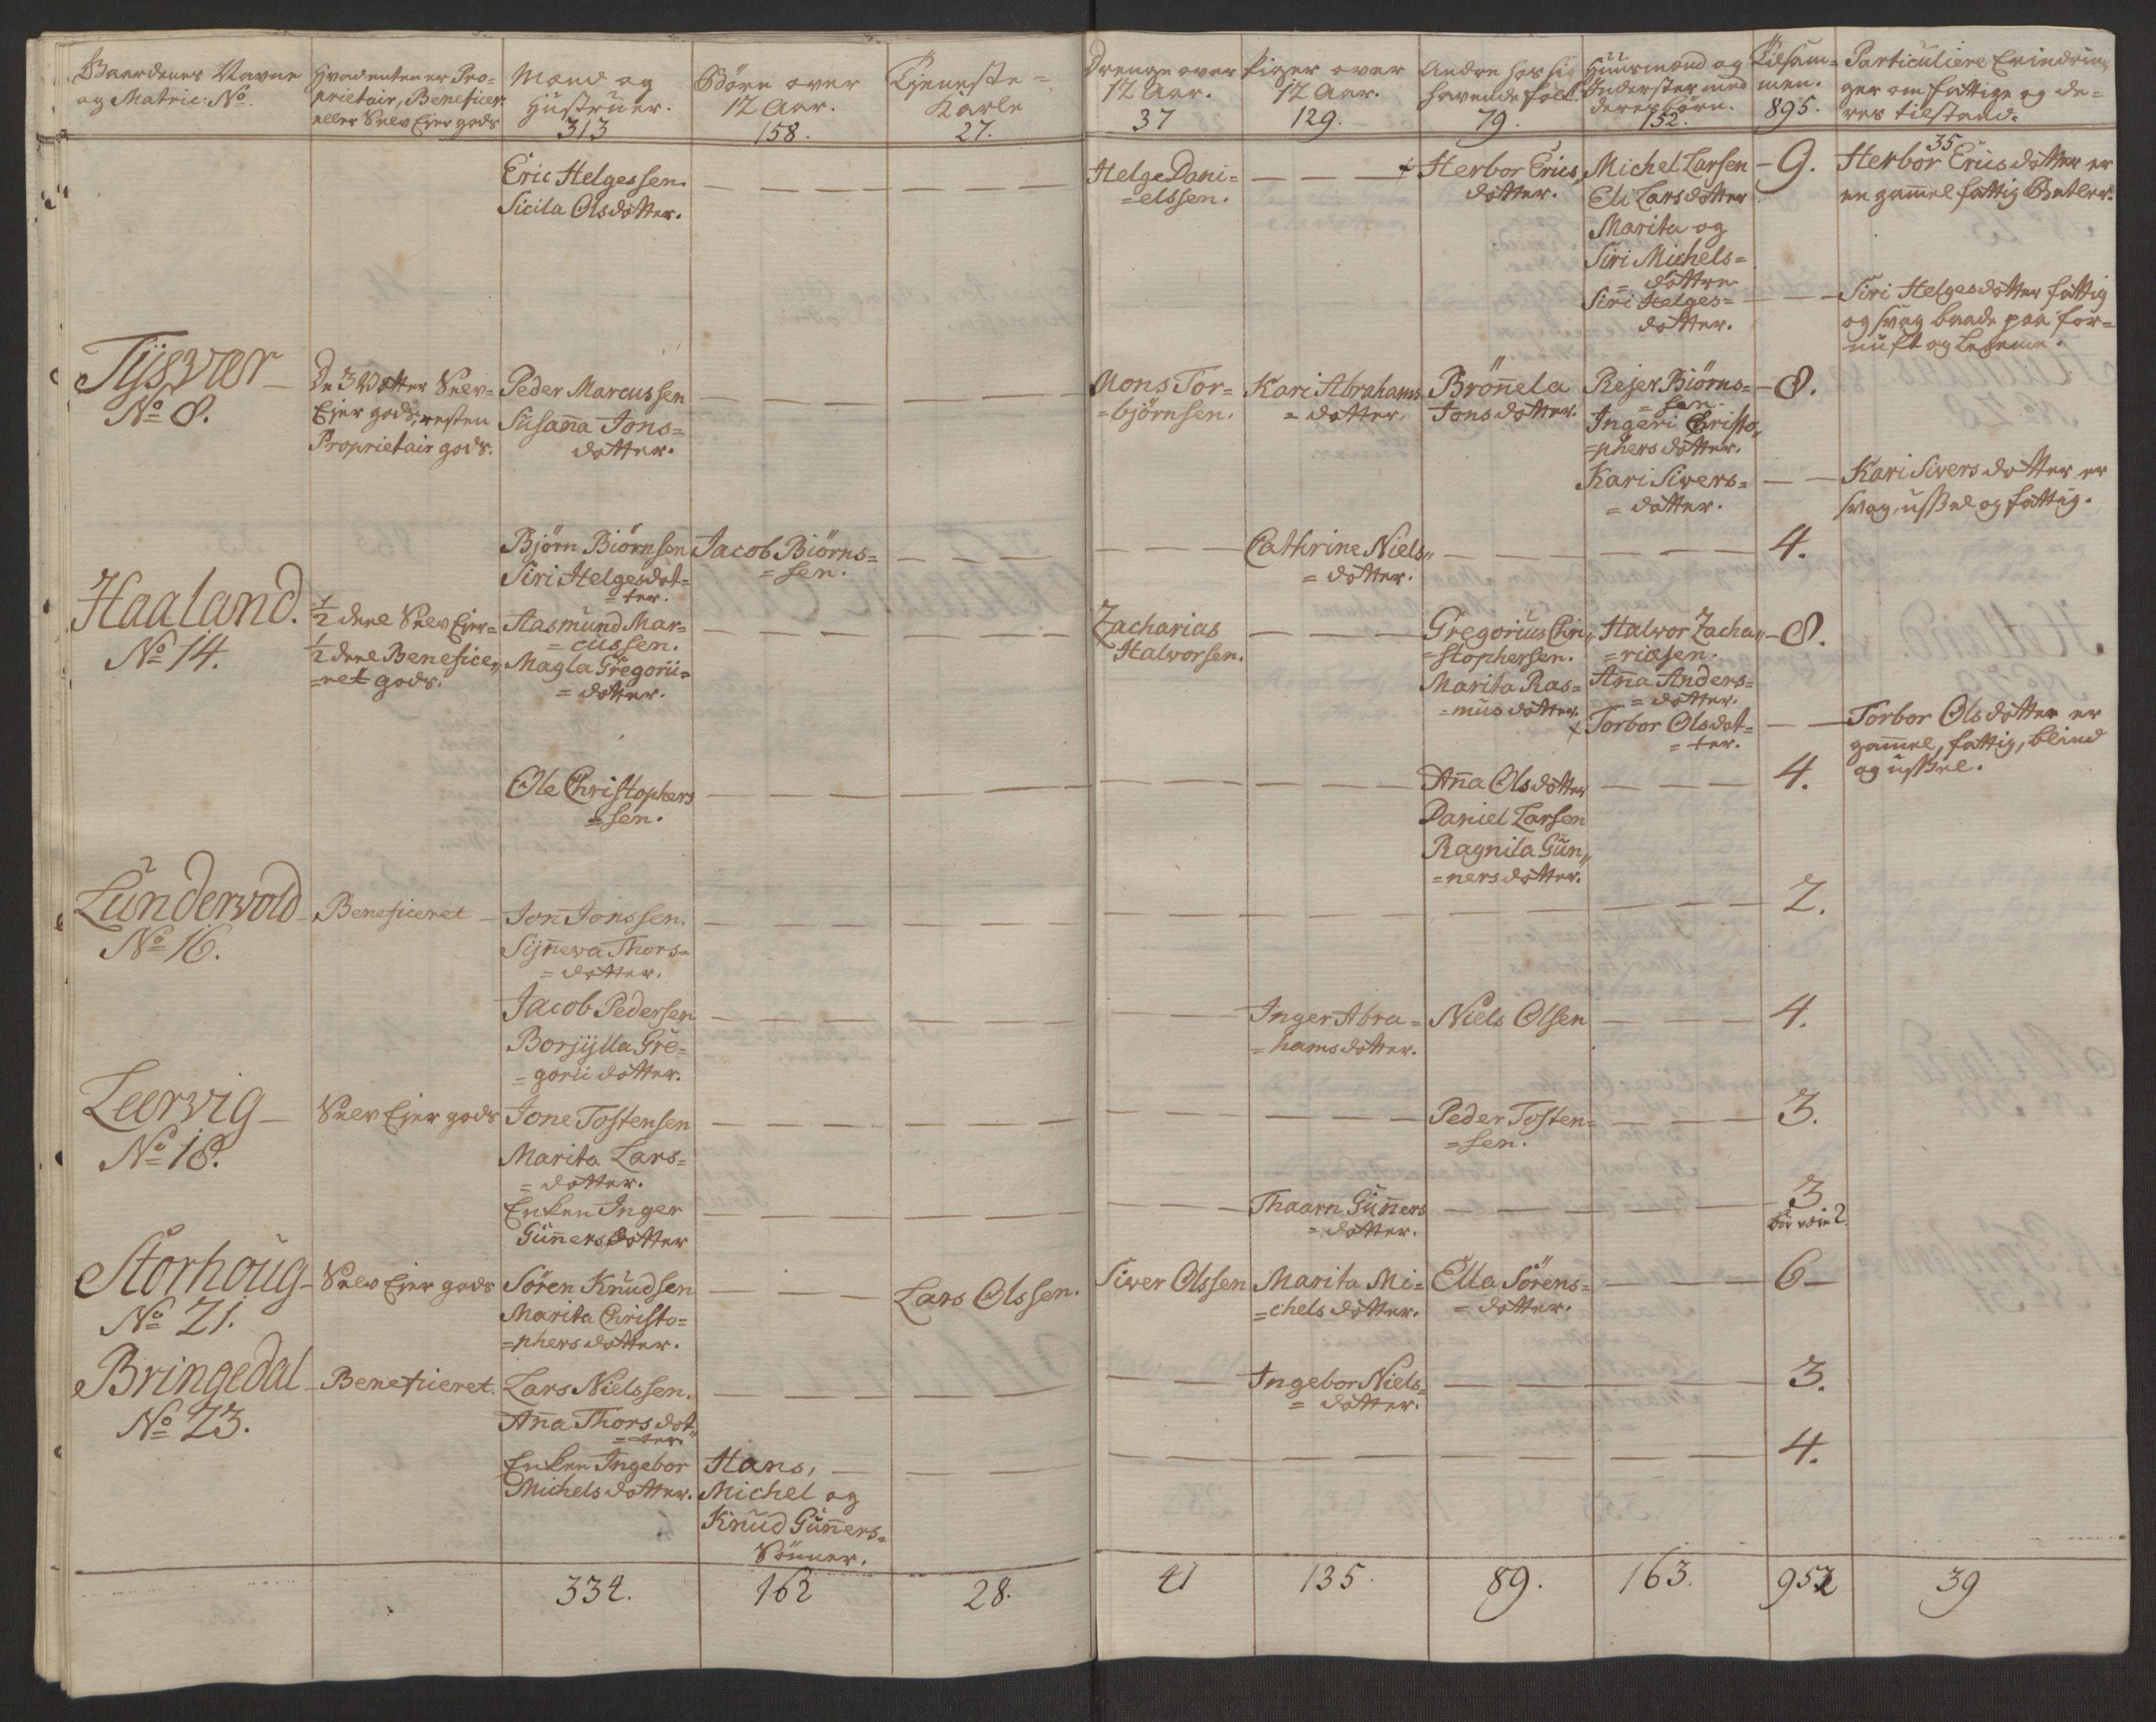 Gaardenes Navne
og Matric: No.
Hvadenten er Pro-
prietair, Beneficer
eller Selv Ejer gods
Mænd og
Hustruer.
313
Börn over
12 Aar.
158.
Tjeneste-
Karle
27.
Drenge over
12 Aar.
37
Piger over
12 Aar.
129.
Andre hos sig
havende folk.
79.
Huusmænd og
Inderster med
deres börn.
152.
Tilsam-
men.
895.
Particuliere Erindrin,
ger om fattige og de-
res tilstand.
35
Eric Helgessen.
Sicila Olsdotter.
Helge Dani-
=elssen.
+ Herbor Erics,
dotter.
Michel Larsen
Eli Larsdotter
Marita og
Siri Michels=
= dottre
Siri Helges=
dotter.
9.
Herbor Ericsdotter er
en gamel fattig Betler.
Siri Helgesdotter fattig
og svag baade paa for=
nuft og Legeme.
Tysvær
No 8.
De 3 Votter Selv-
Ejer gods, resten
Proprietair gods.
Peder Marcussen
Susanna Jons=
dotter.
Mons Tor=
=björnsen.
Kari Abrahams
= dotter.
Brönnela
Jonsdotter.
Rejer Biörns=
= sen.
Ingeri Christo,,
=phersdotter.
Kari Sivers=
= dotter.
8.
Kari Siversdotter er
svag, ussel og fattig.
Björn Biörnsen
Siri Helgesdot=
= ter.
Jacob Biörns=
= sen.
Cathrine Niels,,
= dotter.
4.
Haaland.
No 14.
1/2 deel Selv Ejer-
1/2 deel Benefice,,
=ret gods.
Aasmund Mar=
= cussen.
Magla Gregorii=
= dotter.
Zacharias
Halvorsen.
Gregorius Chri,,
=stophersen.
Marita Ras=
=musdotter.
Halvor Zacha,,
=riæsen.
Anna Anders=
= dotter.
+ Torbor Olsdot=
= ter.
8.
Torbor Olsdotter er
gammel, fattig, blind
og ussel.
Ole Christophers
= sen.
Anna Olsdotter
Daniel Larsen
Ragnila Gun,,
=nersdotter.
4.
Lundervold
No 16.
Beneficeret
Jon Jonssen.
Synneva Thors=
= dotter.
2.
Jacob Pedersen
Borjylla Gre=
= gorii dotter.
Inger Abra=
= hamsdotter.
Niels Olsen
4.
Leervig
No 18.
Selv Ejer gods
Jone Tostensen
Marita Lars=
= dotter.
Peder Tosten=
= sen.
3.
Enken Inger
Gunnersdotter
Thaarn Gunners
= dotter.
3
bör være 2.
Storhoug
No 21.
Selv Ejer gods
Sören Knudsen
Marita Christo=
=phersdotter.
Lars Olssen.
Siver Olssen
Marita Mi=
=chelsdotter.
Ella Sörens=
= dotter.
6
Bringedal
No 23.
Beneficeret.
Lars Nielssen.
Anna Thorsdot,,
= ter.
Ingebor Niels=
= dotter.
3.
Enken Ingebor
Michelsdotter.
Hans,
Michel og
Knud Gunners=
Sönner.
4.
334.
162
28.
41
135
89.
163.
952
39